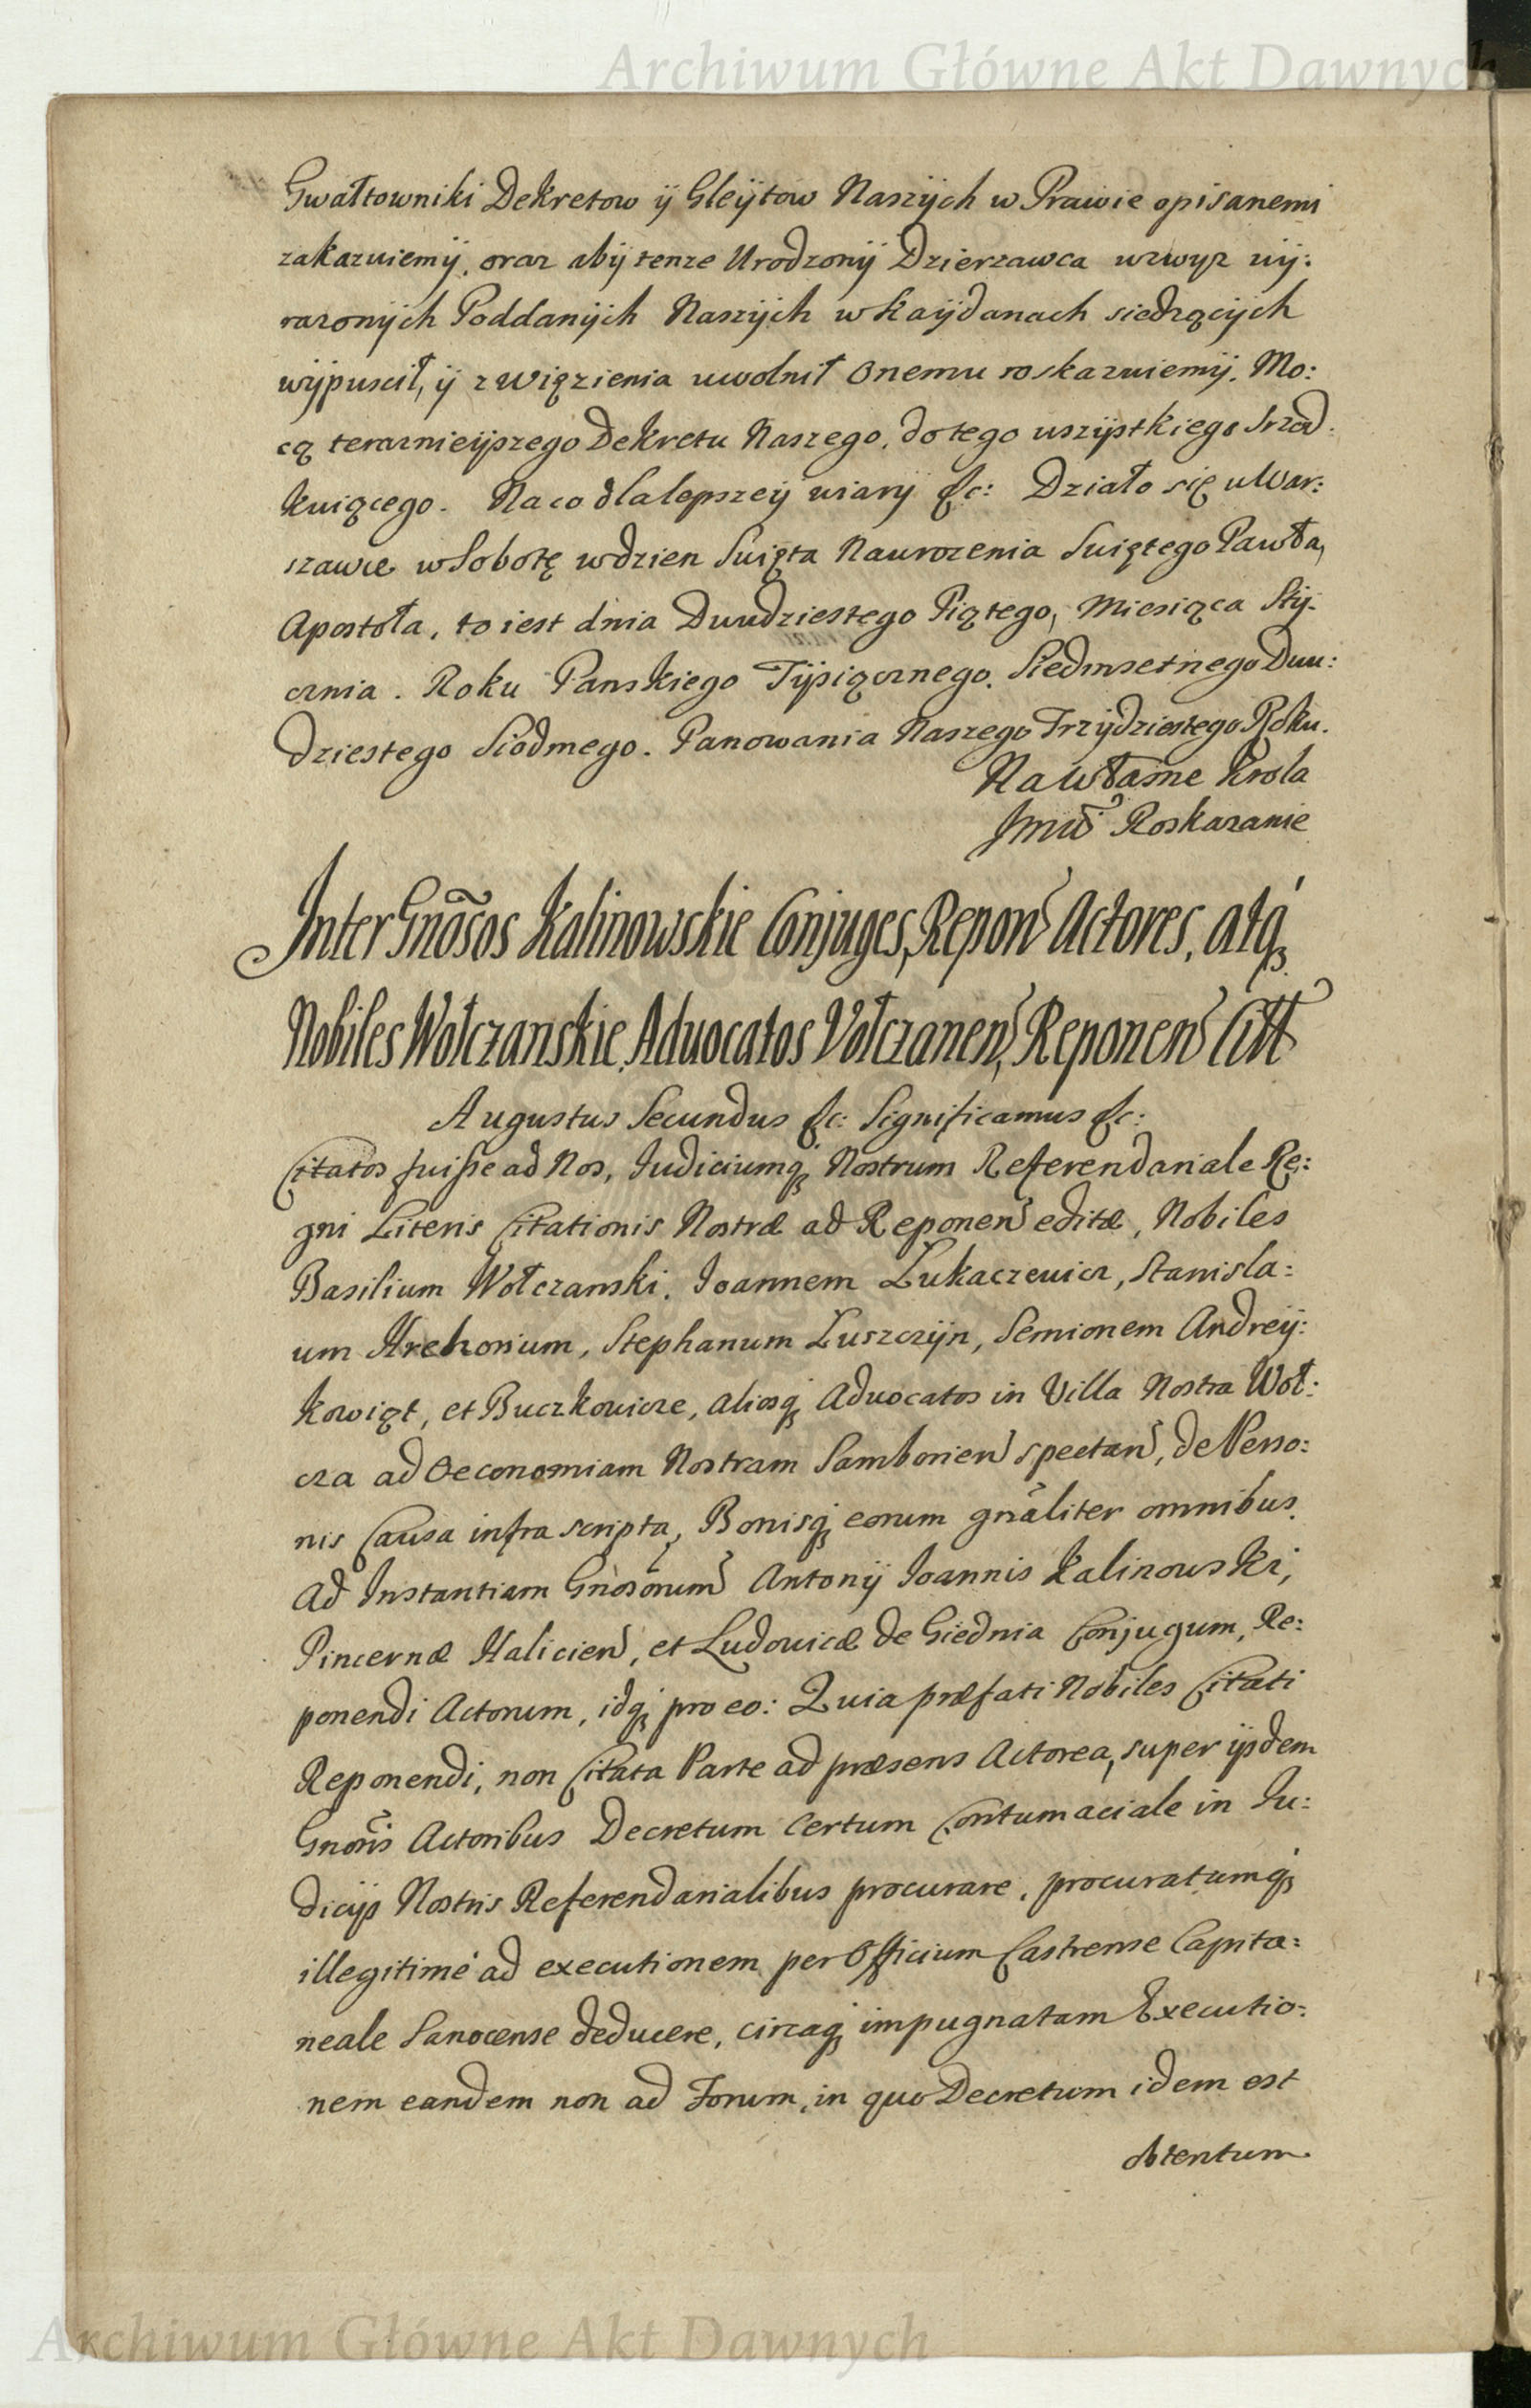 Archiwum Główne Akt Dawnych
Gwałtowniki Dekretow ÿ Gleÿtow Naszÿch w Prawie opisanemi
zakazuiemÿ, oraz abÿ tenze Urodzonÿ Dzierzawca wzwyz uÿ:
razonÿch Poddanÿch Naszÿch w Kaÿdanach siedzącÿch
wÿpuscił, ÿ z Więzienia uwolnił Onemu roskazuiemÿ. Mo:
cą teraznieÿszego Dekretu Naszego, do tego uszÿstkiego srzod:
kuiącego. Na co dla lepszeÿ wiarÿ &c: Działo się u War:
szawie w Sobotę w dzien Swięta Nawrozenia Swiętego Pawła,
Apostoła, to iest dnia Dwudziestego Piątego, Miesiąca Sty:
cznia. Roku Panskiego Tÿsiącznego. Siedmsetnego Dwu:
dziestego Siodmego. Panowania Naszego Trzÿdziestego Roku.
Na Własne Krola
Jmści Roskazanie
Inter Gnõsos Kalinowskie Conjuges, Repon Actores, atq;
Nobiles Wołczanskie Advocatos Vołczanen, Reponen Citt
Augustus Secundus &c: Significamus &c:
Citatos fuisse ad Nos, Iudiciumq; Nostrum Referendariale Re:
gni Literis Citationis Nostræ ad Reponen editæ, Nobiles
Basilium Wołczanski, Ioannem Łukaczewicz, Stanisla:
um Hrehorium, Stephanum Łuszczÿn, Semionem Andreÿ:
kowiąt, et Buczkowicze, aliosq; Advocatos in Villa Nostra Woł:
cza ad Oeconomiam Nostram Samborien spectan, de Perso:
nis Causa infra scripta, Bonisq; eorum gnãliter omnibus.
Ad Instantiam Gnosorum Antonij Ioannis Kalinowski,
Pincernæ Halicien, et Ludovicæ de Giednia Conjugum, Re:
ponendi Actorum, idq; pro eo: Quia præfati Nobiles Citati
Reponendi, non Citata Parte ad præsens Actorea, super ijsdem
Gnosis Actoribus Decretum certum Contumaciale in Iu:
dicijs Nostris Referendarialibus procurare, procuratumq;
illegitimé ad executionem per Officium Castrense Capita:
neale Sanocense deducere, circaq; impugnatam Executio:
nem eandem non ad Forum, in quo Decretum idem est
obtentum
Archiwum Główne Akt Dawnych